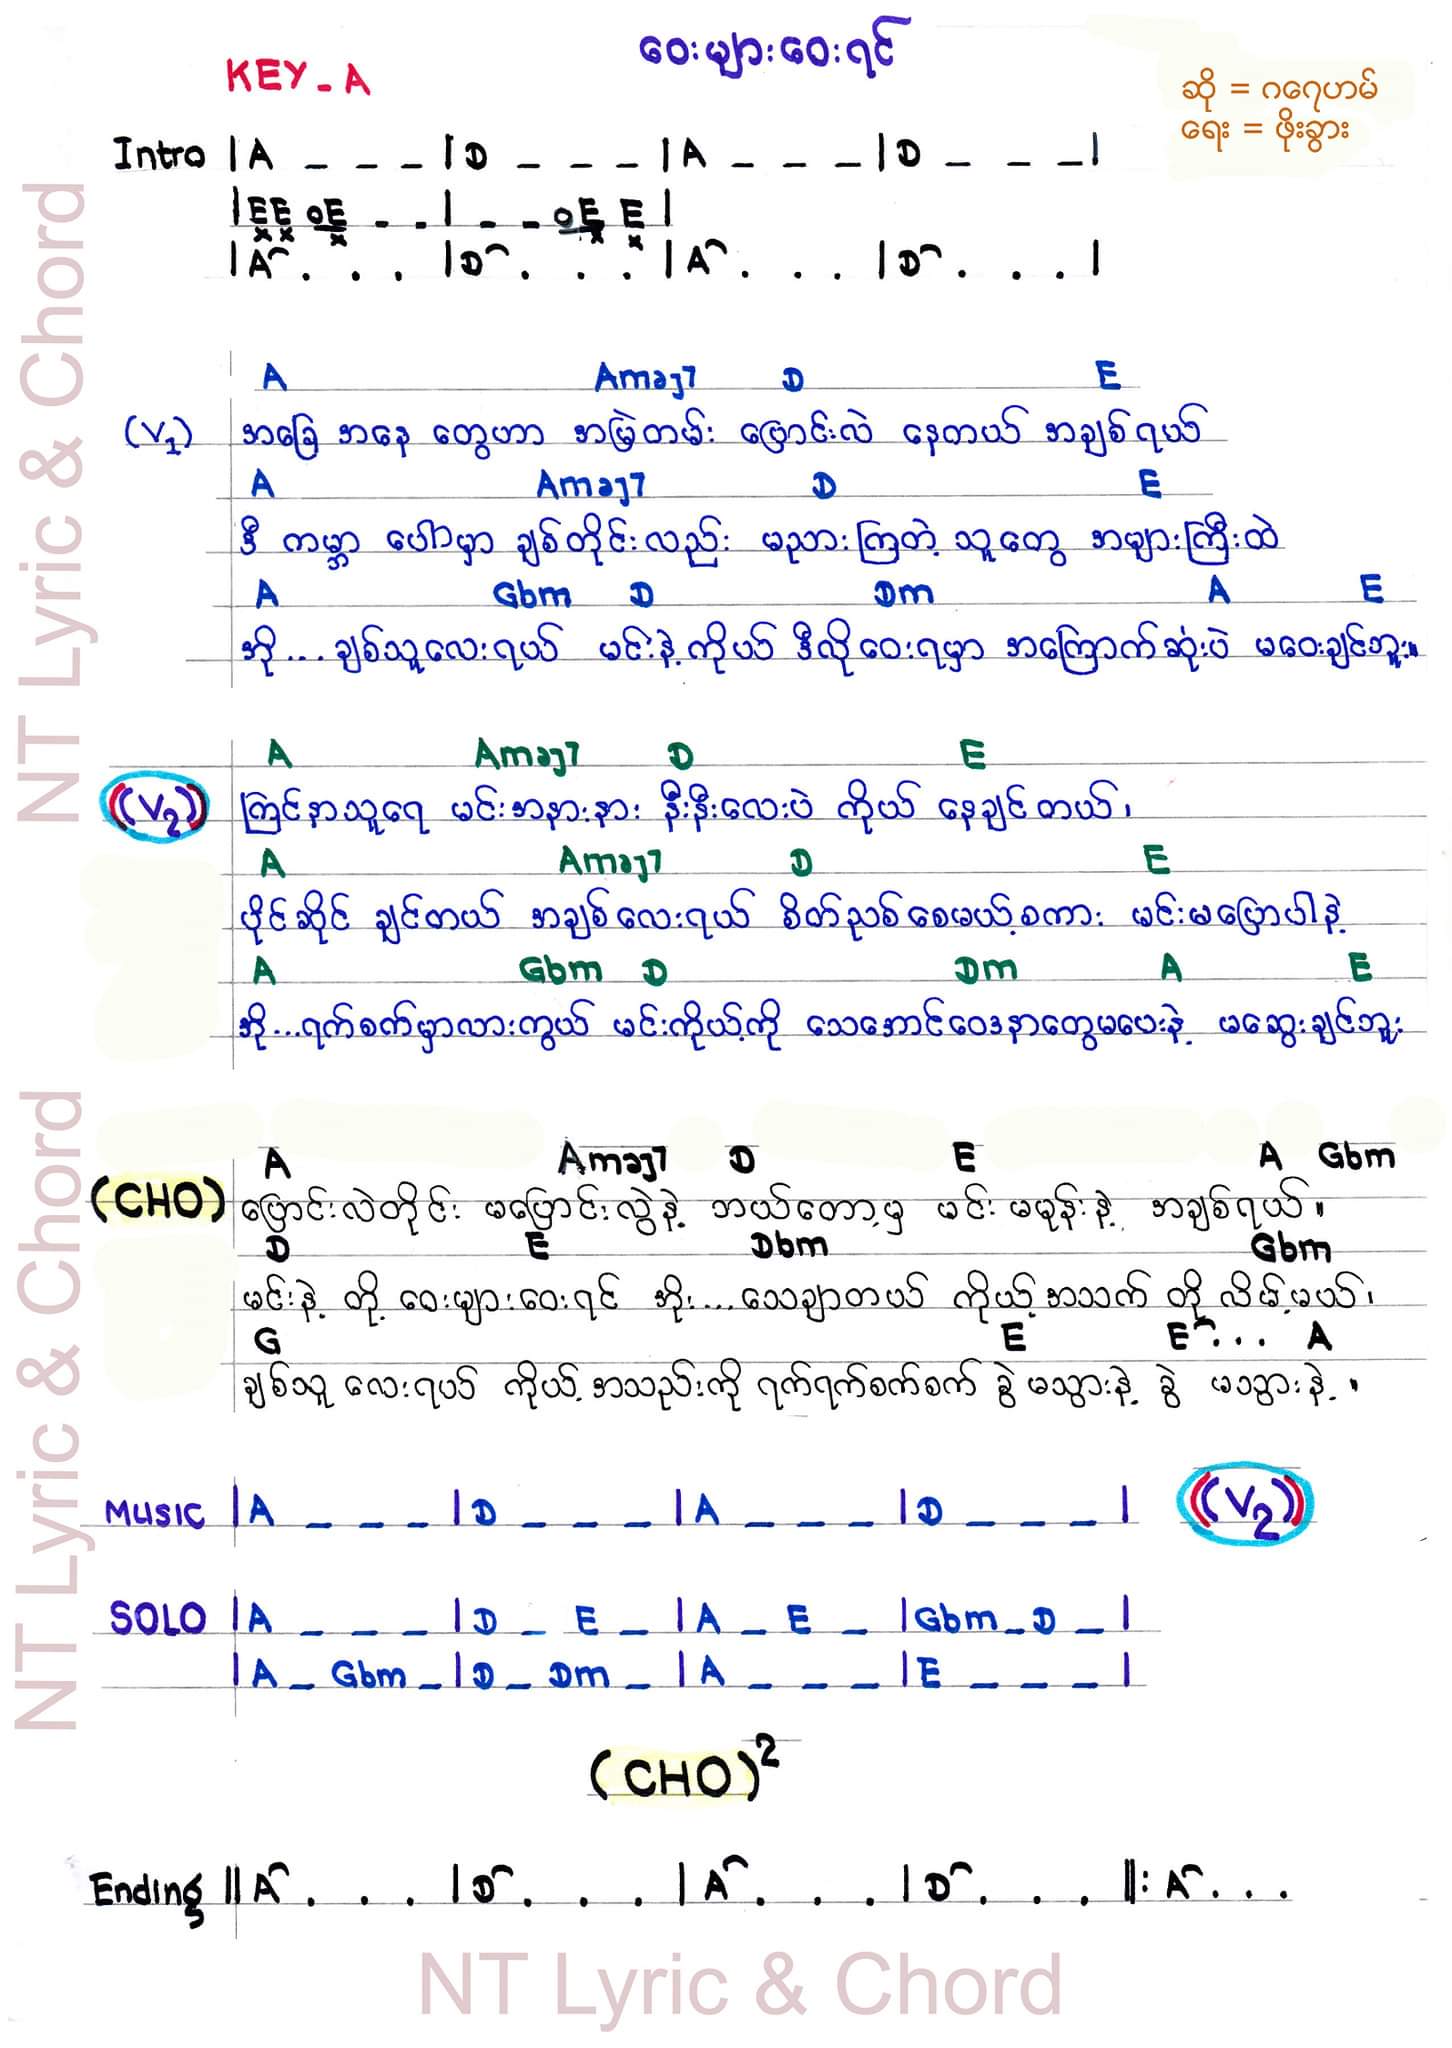 ဝေးများဝေးရင်
KEY - A
ဆို = ဂရေဟမ်
ရေး = ဖိုးခွား
Intro | A _ _ _ | D _ _ _ | A _ _ _ | D _ _ _ |
| E E o E - - | - - o E E |
x x x x x
| A . . . | D . . . | A . . . | D . . . |
A Amaj7 D E
(V1) အခြေ အနေ တွေဟာ အမြဲတမ်း ပြောင်းလဲ နေတယ် အချစ်ရယ်
A Amaj7 D E
ဒီ ကမ္ဘာ ပေါ်မှာ ချစ်တိုင်းလည်း မညားကြတဲ့ သူတွေ အများကြီးထဲ
A Gbm D Dm A E
အို... ချစ်သူလေးရယ် မင်းနဲ့ ကိုယ် ဒီလိုဝေးရမှာ အကြောက်ဆုံးပဲ မဝေးချင်ဘူး။
A Amaj7 D E
(V2) ကြင်နာသူရေ မင်းအနားနား နီးနီးလေးပဲ ကိုယ် နေချင်တယ်၊
A Amaj7 D E
ပိုင်ဆိုင် ချင်တယ် အချစ်လေးရယ် စိတ်ညစ်စေမယ့်စကား မင်းမပြောပါနဲ့
A Gbm D Dm A E
အို...ရက်စက်မှာလားကွယ် မင်းကိုယ့်ကို သေအောင်ဝေဒနာတွေမပေးနဲ့ မဆွေးချင်ဘူး
A Amaj7 D E A Gbm
(CHO) ပြောင်းလဲတိုင်း မပြောင်းလွဲနဲ့ ဘယ်တော့မှ မင်း မမုန်းနဲ့ အချစ်ရယ်။
D E Dbm Gbm
မင်းနဲ့ တို့ ဝေးများဝေးရင် အိုး...သေချာတယ် ကိုယ့်အသက် တို့ လိမ့်မယ်၊
G E E . . . A
ချစ်သူ လေးရယ် ကိုယ့်အသည်းကို ရက်ရက်စက်စက် ခွဲ မသွားနဲ့ ခွဲ မသွားနဲ့ ။
MUSIC | A _ _ _ | D _ _ _ | A _ _ _ | D _ _ _ | (V2)
SOLO | A _ _ _ | D _ E _ | A _ E _ | Gbm _ D _ |
| A _ Gbm _ | D _ Dm _ | A _ _ _ | E _ _ _ |
(CHO)²
Ending || A . . . | D . . . | A . . . | D . . . ||: A . . .
NT Lyric & Chord
NT Lyric & Chord
NT Lyric & Chord